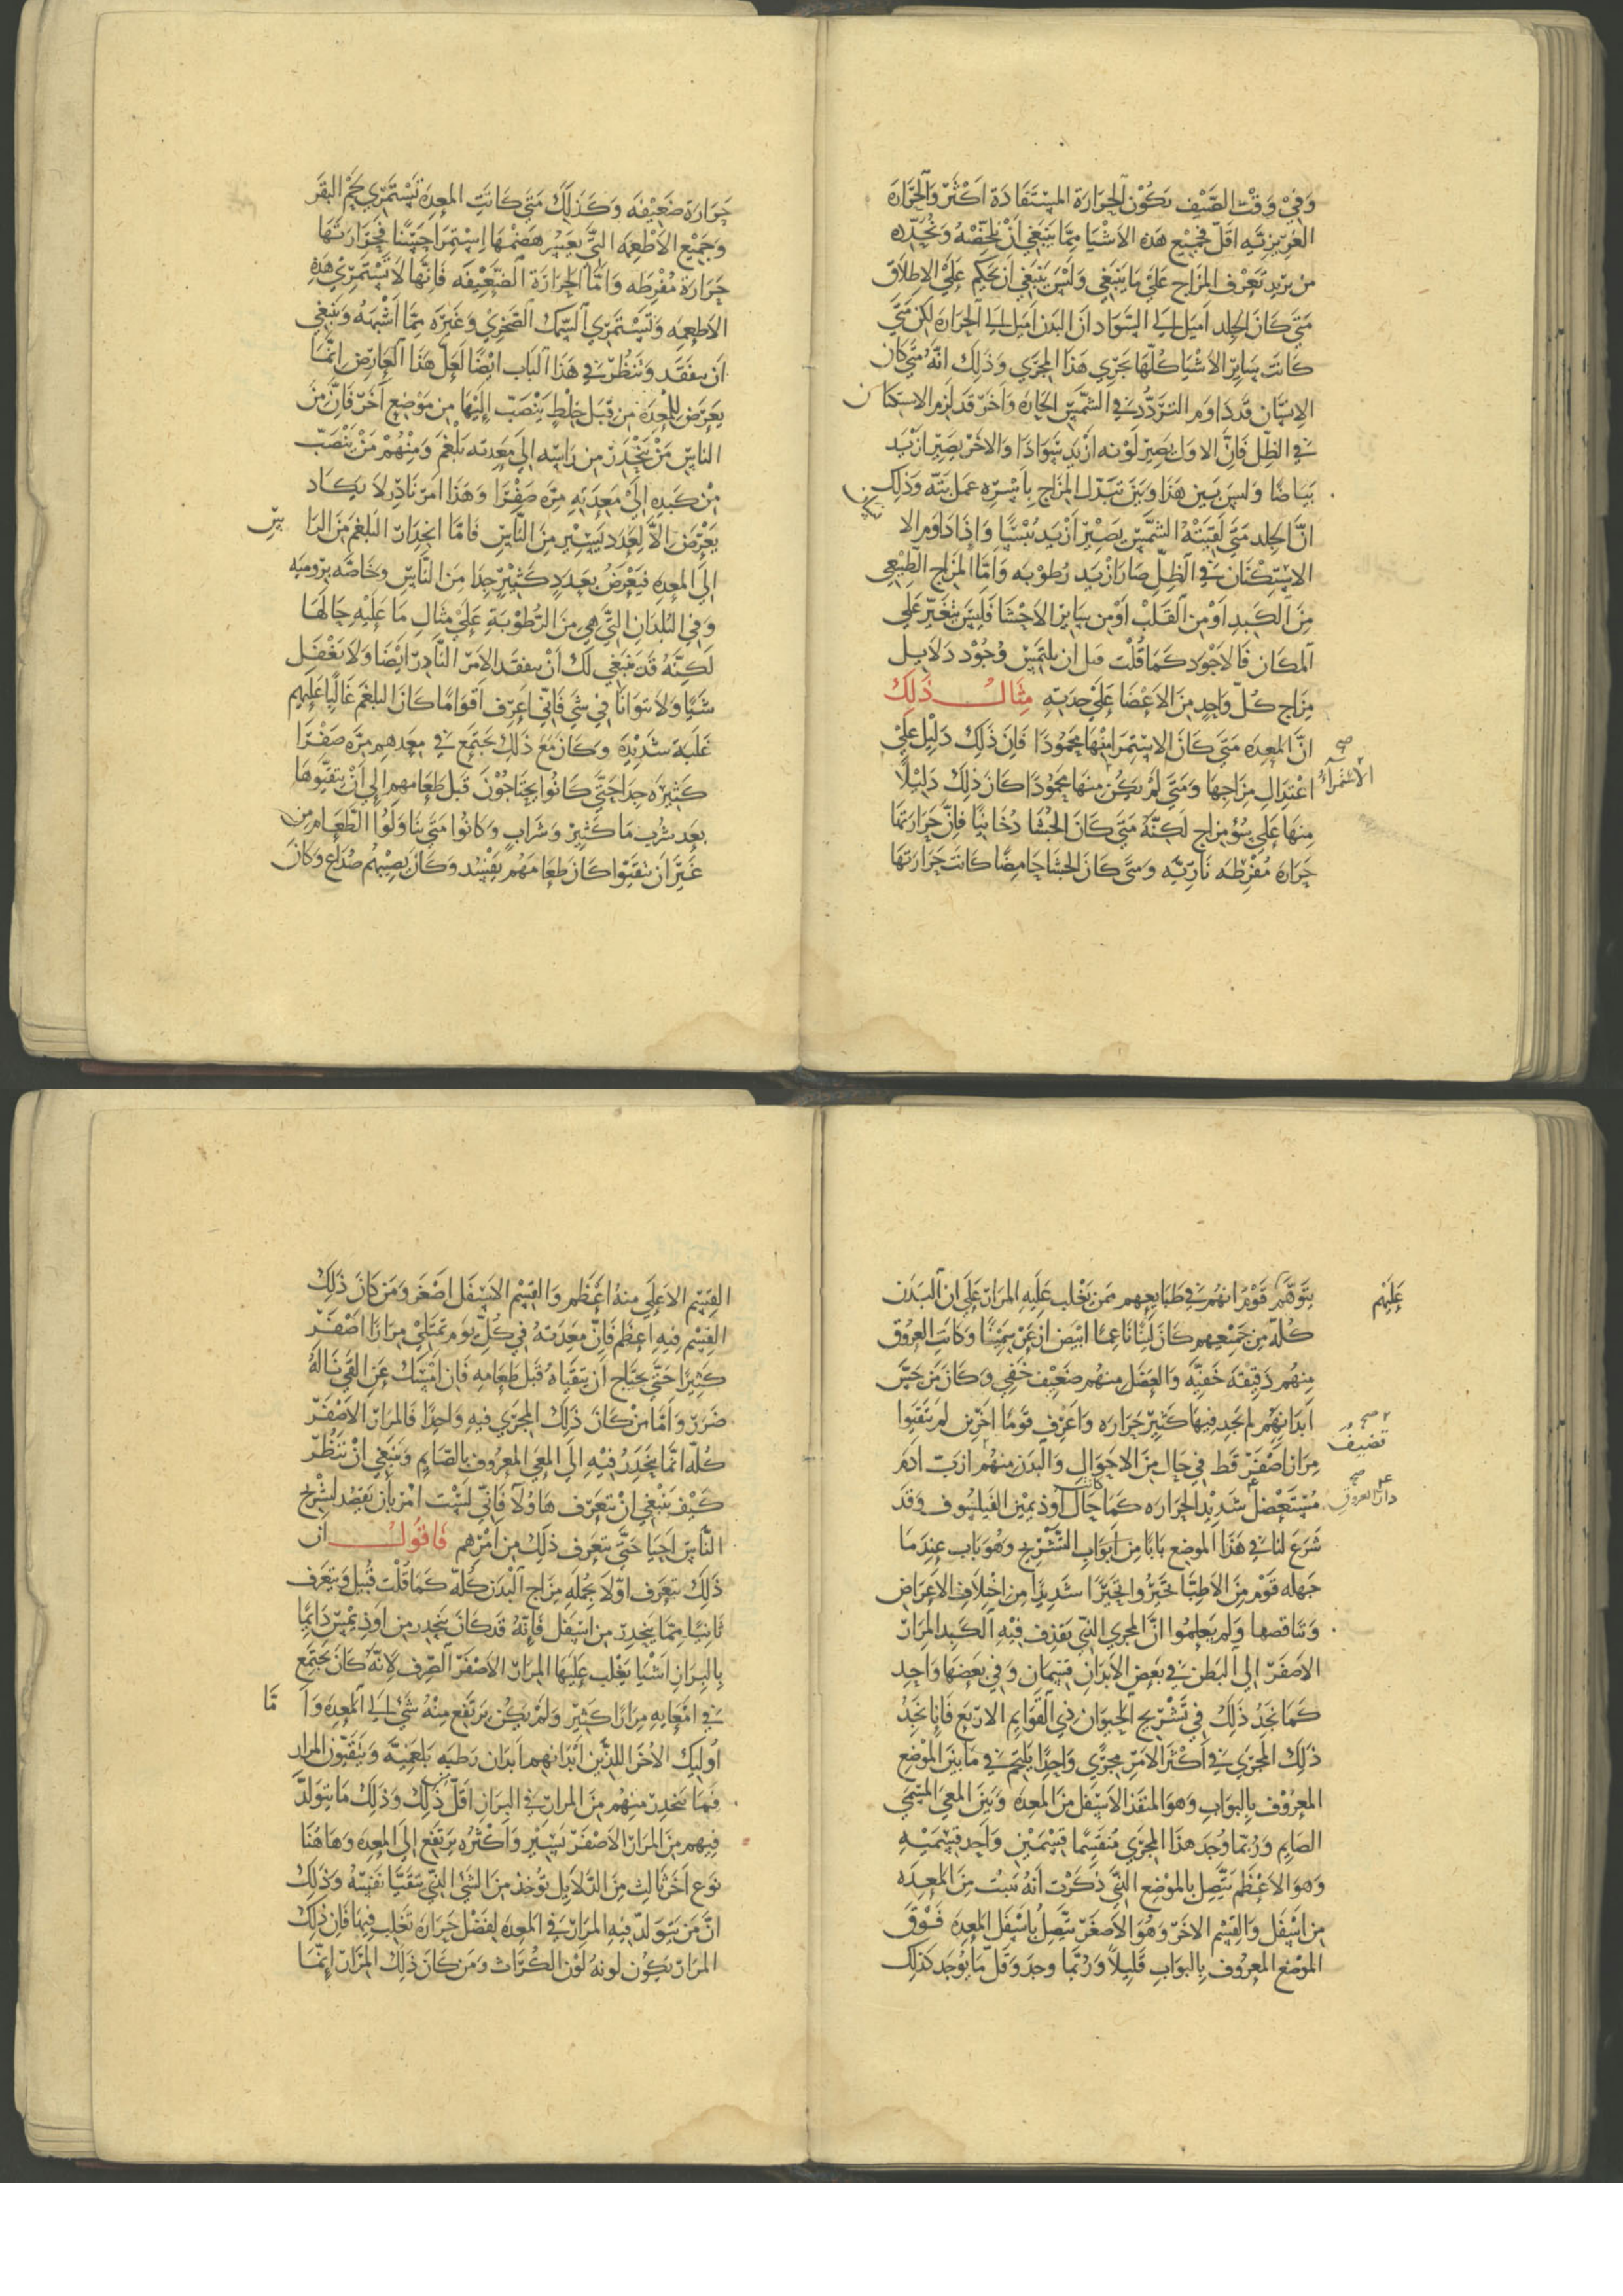 وَفِي وَقْت الصَّيْف يَكُوْن الحَرَارَة المسْتَفَادَة اَكْثَرَ وَالحَرَارَة
الغريزيّه اقلّ فجميْع هَذِه الاشيَا مِمّا يَنبَغِي اَنْ يلخّصهُ وَيحُدّده
مَن يريد تَعَرُّف المِزَاج عَلَىَ مَا يَنبَغِي وَلَيْسَ يَنْبَغِي اَن يحكم عَلَيَ الاطلَاق
مَتَى كَانَ الجلد اميَل الي السَّوَاد انَّ البَدَن اَميَل الي الحَرَاره لكن مَتَي
كَانَت سَايِر الاَشْيَا كُلّهَا تجَري هَذَا المجرَي وَذَلِك انّهُ مَتَي كان
الانسَان قَد دَاوَم التَردُّد في الشمَّس الحَارّه وَآخر قَد لزم الاستكنان
فِي الظِّل فَانّ الاوّل يَصِير لَوْنه ازْيَد سَوَادًا وَالاخر يَصِيرْ ازْيَد
بَيَاضًا وَليسَ بَين هَذَا وَبَيْن تبَدّل المزَاج بِاَسْرِه عمَل بَتّه وَذَلِك
انّ الجلد مَتَي لَقيَتْهُ الشمَّس يَصِيرْ اَزْيَد يُبْسًا وَاِذَا دَاوَم الا
الاسْتِكْنَان فِي الظّلّ صَارَ ازْيَد رُطوْبَه وَامّا المزَاج الطّبيْعي
مِنَ الكَبِد اوْ مِن القَلبْ اَوْ من سَاير الاَحْشَا فَليْسَ يتغَيّر عَلَي
المكَان فَالاَجْوَد كَمَا قُلْت قبل ان يلتمَس وُجُوْد دَلاَيل
مِزَاج كُلّ وَاحِدٍ مِنَ الاَعْضَا عَلَيَ حِدَتِهِ مِثَال ذَلِكَ
انّ المعِده مَتَي كَانَ الاستمرا مِنْهَا محمُودًا فَاِنّ ذَلِك دَلِيْل عَلَيْ
اعْتدَالِ مِزَاجهَا وَمَتَي لَمْ يَكُن مِنهَا محمُودًا كَانَ ذَلِك دَلِيْلاً
الاستمراءُ صح
مِنهَا عَلَي سُوْءِ مزاج لَكنّهُ مَتَي كَانَ الجُشَا دُخانِيًّا فاِنّ حَرَارَتهَا
حَرَارة مُفْرِطه نَارِيّه وَمَتَي كَانَ الجشَا حَامِضًا كَانَت حَرَارَتهَا
حَرَارَة ضَعيْفه وَكذَلِكَ مَتَى كَانَتِ المعِدَة تَسْتَمري لَحْم البَقَر
وَجَميْع الاطعِمَه الَّتي يعَسُر هَضْمهَا اِسْتِمرا حَسَنًا فحَرَارتهَا
حَرَارَة مُفْرطه وَامّا الحَرَارَة الضَّعِيْفَه فَانَّها لاَ تَسْتَمِري هَذِهِ
الاَطعِمَه وَتَسْتَمْري السّمَك الصّخري وَغَيرَه مِمّا اَشْبهَهُ وَينبَغِي
اَن يتفَقد وَتنظُر في هَذَا البَاب ايْضًا لَعلّ هَذَا العَارِض اِنَّمَا
يَعرض للمعِدَة مِن قبَل خِلْطٍ يَنْصَبّ اِلَيْهَا من مَوْضعٍ آخَر فَانّ منَ
النَّاسِ مَنْ يَنْحَدِرْ مِن رَاسِه الَي مَعِدَته بَلْغَم وَمنْهُمْ مَنْ يَنْصَبّ
مِنْ كَبدِه الَيْ مَعِدَتِهِ مِرّه صَفْرَا وَهَذَا امر نَادِر لاَ يَكَاد
يَعْرِضُ الاّ لعَدد يَسِيْر مِنَ النَّاسِ فَامّا انحِدَار البَلغم مِنَ الرَا سِ
اِلَي المعِدَه فيَعْرضُ بعَدَدٍ كَثِيْر جدًا مِنَ النَّاسِ وَخَاصّه برُوميَه
وَفي البُلدَان الَّتي هِيَ مِنَ الرُّطوْبَةِ عَلَيْ مثَالِ مَا عَلَيْهِ حَالَهَا
لَكِنَّهُ قَد يَنبَغِي لَك اَنْ تتفقّد الاَمر النَّادر ايْضًا وَلاَ تَغْفل
شَيًا وَلاَ تتوَانَا في شَي فَاني اَعرف اقَوَامًا كَانَ البلغم غَالِبًا عَلَيهم
غَلَبَة شَدِيْدَة وكَانَ مَعَ ذَلِك يَجتمع فِي معَدِهِم مرّه صَفْرَا
كَثِيره جدًا حَتّي كَانُوا يحتَاجُوْنَ قَبل طَعَامهم اِلي اَنْ يتقيّوهَا
بعد شُرْب مَا كَثِيرْ وَشَرَاب وَكَانُوا مَتَى تنَاوَلُوا الطَّعَام من
غَير اَن يتقيّوا كَانَ طَعَامَهُم يَفْسُد وَكَانَ يُصِيْبهُم صُدَاع وَكَانَ
يتَوّهّم قَوْم انهُم في طَبَايعِهم ممن يَغْلب عَلَيهِ المرَار عَلَي ان البَدَن
عَلَيْهم
كُلّه مِن جَميْعِهم كَانَ لَيّنًا نَاعمًا ابيَض ازعَر سَمينًا وَكَانَتِ العرُوْق
مِنهُم دَقيْقَة خَفيّه وَالعَضَل مِنهُم ضَعِيْف خَفِي وَكَانَ مَن جَسَّ
اَبدَانهُم لم يَجد فيهَا كَثِيرْ حَرَاره وَاَعْرف قَومًا آخَرين لم يَتَقَيوا
مِرَارًا اصْفَر قَط فِي حَالٍ مِنَ الاَحوَال وَالبَدَن مِنهُمْ ازبّ ادَم
قضيف صح
مُسْتَعضل شَدِيْد الحَرَاره كَمَا كَانت حَال اوذيميْس الفيْليسُوف وَقد
دارّ العروق صح
شَرَعَ لنا في هَذَا الموضع بَابًا مِنْ اَبوَابِ التَّشْرِيح وَهُوَ بَاب عِندَمَا
جَهلَه قَوْم مِنَ الاَطِبّا تحيّرُوا تحيّرًا شَدِيدًا مِن اختلاف الاعرَاض
وَتناقضهَا وَلم يَعلمُوا انَّ المجري الّذي يَقذف فيْهِ الكَبِد المرَار
الاَصفَر الي البَطن في بَعض الاَبدَان قسْمَان وَفي بَعضهَا وَاحِد
كَمَا نَجدُ ذَلِك في تَشْريح الحَيوَان ذِي القوَايم الاربَع فَانا نَجدُ
ذَلك المجرَي في اَكثَر الاَمْر مجرًي وَاحدًا يَلتحم في مَا بَيْنَ الموْضع
المعرُوْف بِالبوّابِ وَهوَ المنفَذ الاَسْفَل مِنَ المعِدَة وَبَيْن المعي المسَمّي
الصَايم وَرُبمّا وُجِدَ هذَا المجرَي مُنْقَسِمًا قِسْمَيْن وَاَحد قِسْمَيْه
وَهوَ الاَعْظَم يَتَّصِل بالموْضع الَّذي ذَكَرْت اَنهُ يَنبُت مِنَ المعِدَه
مِن اَسْفَل وَالقِسْم الاخَر وَهُوَ الاَصغَر يتّصِل باَسْفَل المعِدَه فَوْقَ
الموْضع المعرُوف بِالبوَّابِ قَلِيْلاً وَرُبّمَا وجدَ وَقَلّ مَا يُوْجَد كَذَلك
القِسْم الاَعلَي مِنهُ اَعْظَم وَالقِسْم الاَسْفَل اَصْغَر وَمَن كَانَ ذَلِكَ
القسْم فيهِ اعظَم فَاِنّ مَعِدَتهُ في كُلّ يَوم تَمتَلي مِرَارًا اصْفَر
كَثِيرًا حَتّي يحتَاج اَن يَتقيّاهُ قَبْل طَعَامِه فَان امْسَك عَن القَي نَالهُ
ضَرر وَاَمّا مَنْ كَانَ ذَلِك المجرَي فيهِ وَاحِدًا فَالمَرار الاَصْفَر
كُلّه انّمَا يَنحَدِرُ فيْهِ الَي المعي المعرُوف بالصَّايم وَيَنبَغي انْ نَنظُر
كَيْفَ يَنْبَغي انْ نتعَرّف هَاؤُلاَ فَانّي لَسْت امْر بان يَقصد لشْرح
النّاس احيَا حَتّي يتعَرف ذَلِك مِن اَمْرِهم فَاقُول اَن
ذَلِك يتعَرف اوّلاَ بجُملَه مِزَاج البَدَن كُلّه كَمَا قُلت قُبيل وَيتعَرف
ثَانيًا مِمّا يَنحدر من اسْفل فَاِنّهُ قَد كَانَ يَنحدر من اوذيميْس دَايمًا
بِالبِرَاز اَشْيَا يَغْلب عَلَيهَا المرَار الاَصْفَر الصّرف لاَنّه كَانَ يَجتَمِع
فِي امْعَايِه مِرَار كَثِير وَلمْ يَكُن يَرتفَع مِنْهُ شَي الي المعِدَه وَا مّا
اُوليك الاُخَر اللذَيْن اَبدَانهم ابدَان رَطبَه بَلغمَيّه وَيَتقيّون المرار
فمَا يَنحدِر مِنهُم مِنَ المرَار فِي البَراز اَقَلّ مِن ذَلِك وَذَلِك مَا يتولّد
فِيهم مِنَ المرَار الاَصْفَر يَسِيْر وَاَكْثَره يَرتَفع الَي المعِدَه وَهَاهُنَا
نَوع آخَر ثَالِث مِنَ الدّلاَيِل يُؤخَذ مِنَ الشَي الَّذي يَتقيّا نَفسهُ وَذَلِك
انّ مَن يتوَلدّ فيهِ المرَار في المَعِدَه لِفَضْل حَرَارَه تَغلِب فِيهَا فَان ذَلِك
المرَار يَكُوْن لونهُ لَوْن الكُرّاث وَمَن كَانَ ذَلِكَ المرَار اِنَّمَا